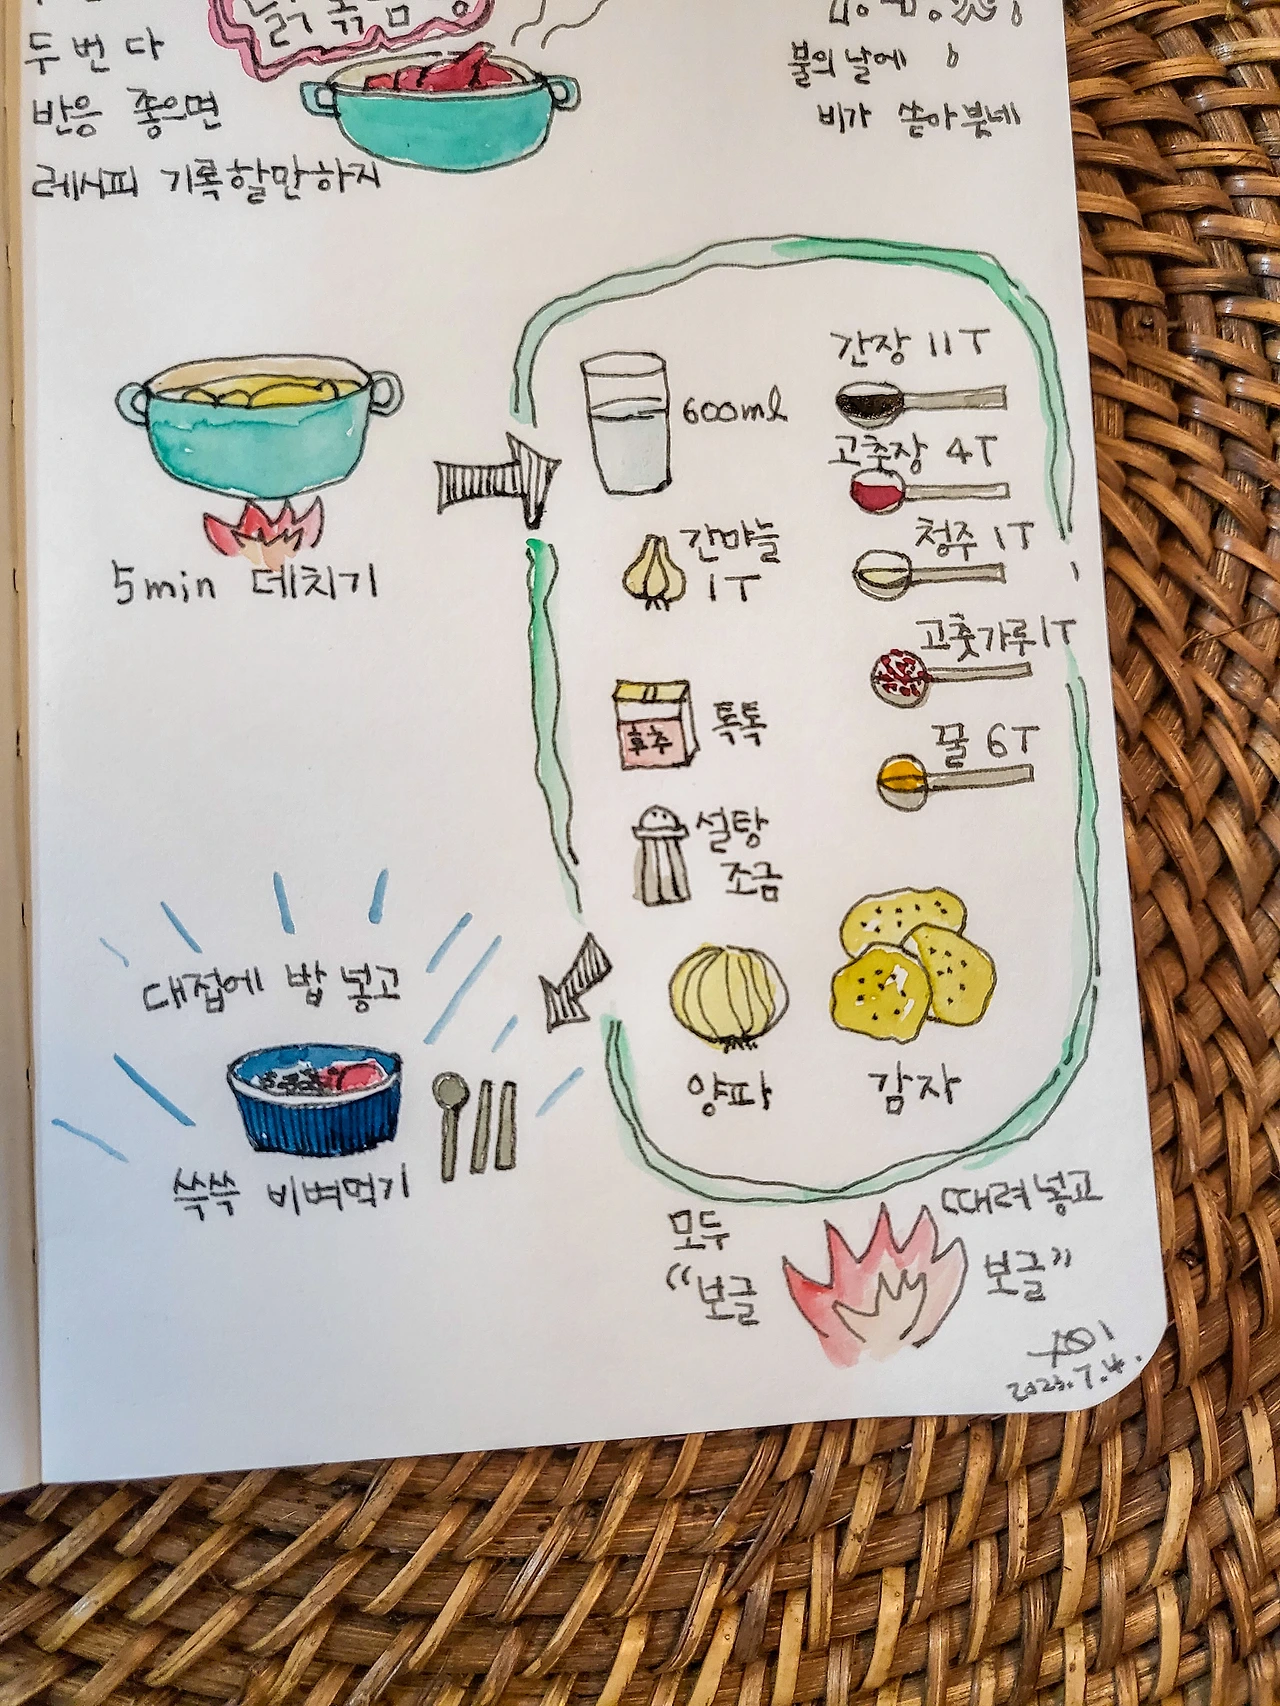 두 번 다
반응 좋으면
레시피 기록할만하지
불의 날에
비가 쏟아붓네
5min 데치기
600ml
간마늘
1T
후추
톡톡
설탕
조금
양파
간장 11T
고추장 4T
청주 1T
고춧가루 1T
꿀 6T
감자
모두
때려넣고
"보글
보글"
대접에 밥 넣고
쓱쓱 비벼먹기
2023.7.4.